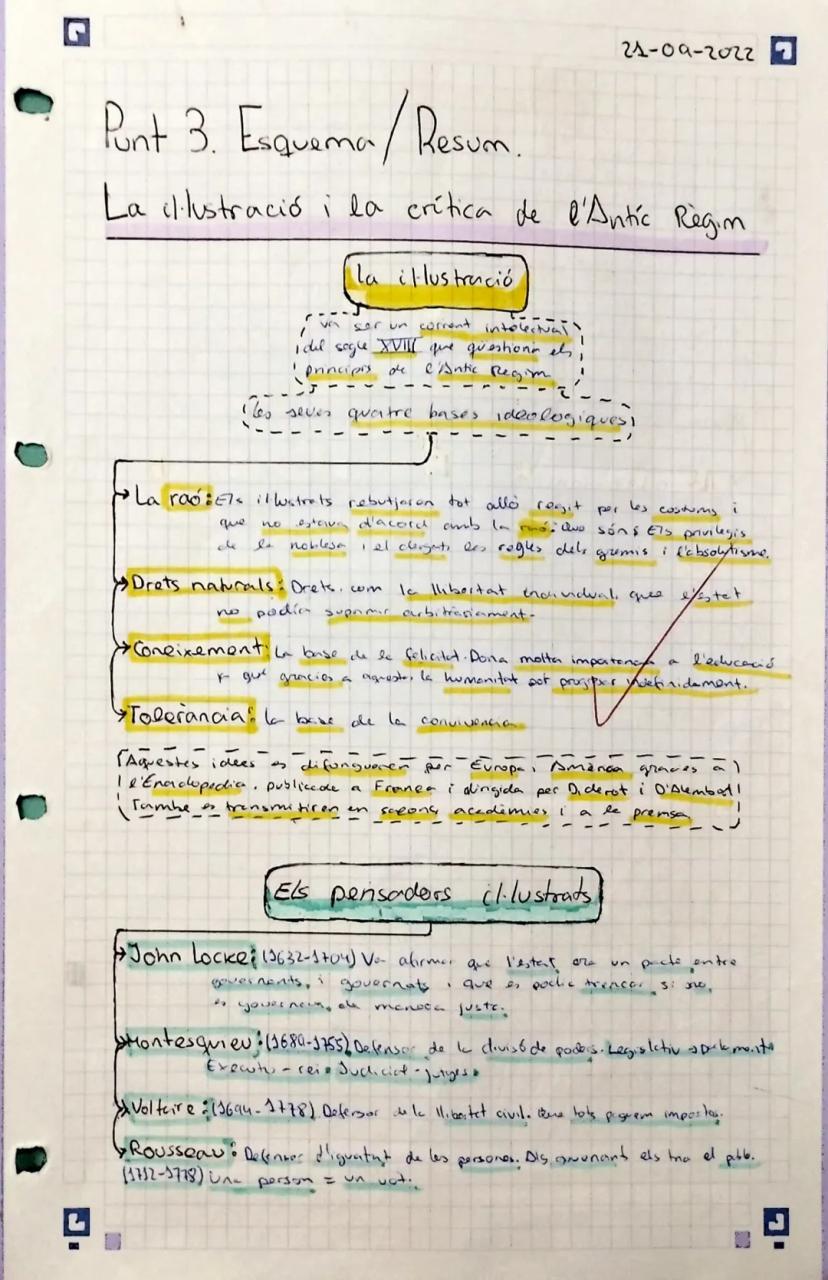 21-09-2022
Punt 3. Esquema/Resum.
La il·lustració i la crítica de l'Antic Règim
la il·lustració
va ser un corrent intelectual
del segle XVIII que qüestiona els
principis de l'Antic Regim
les seves quatre bases ideologiques
La raó: Els il·lustrats rebutjaren tot allò regit per les costums i
que no estava d'acord amb la raó. Que són? Els privilegis
de la noblesa i el clergat, les regles dels gremis i l'absolutisme.
Drets naturals: Drets com la llibertat individual que l'estat
no podia suprimir arbitrariament.
Coneixement: La base de la felicitat. Dona molta importancia a l'educació
que gracies a aquesta, la humanitat pot progresar indefinidament.
Tolerància: la base de la convivencia
Aquestes idees es difongueren per Europa i Amèrica gracies a
l'Enciclopedia, publicada a França i dirigida per Diderot i D'Alembert
També es transmitiren en salons, acadèmies i a la premsa
Els pensadors il·lustrats
John Locke: (1632-1704) Va afirmar que l'estat era un pacte entre
governants i governats i que es podia trencar si no
es governava de manera justa.
Montesquieu: (1689-1755) Defensor de la divisó de poders. Legislatiu → Parlament
Executiu - rei · Judicial - jutges.
Voltaire: (1694-1778) Defensor de la llibertat civil. Que tots paguem impostos.
Rousseau: Defensor d'igualtat de les persones. Els governants els tria el pob.
(1712-1778) Una person = un vot.